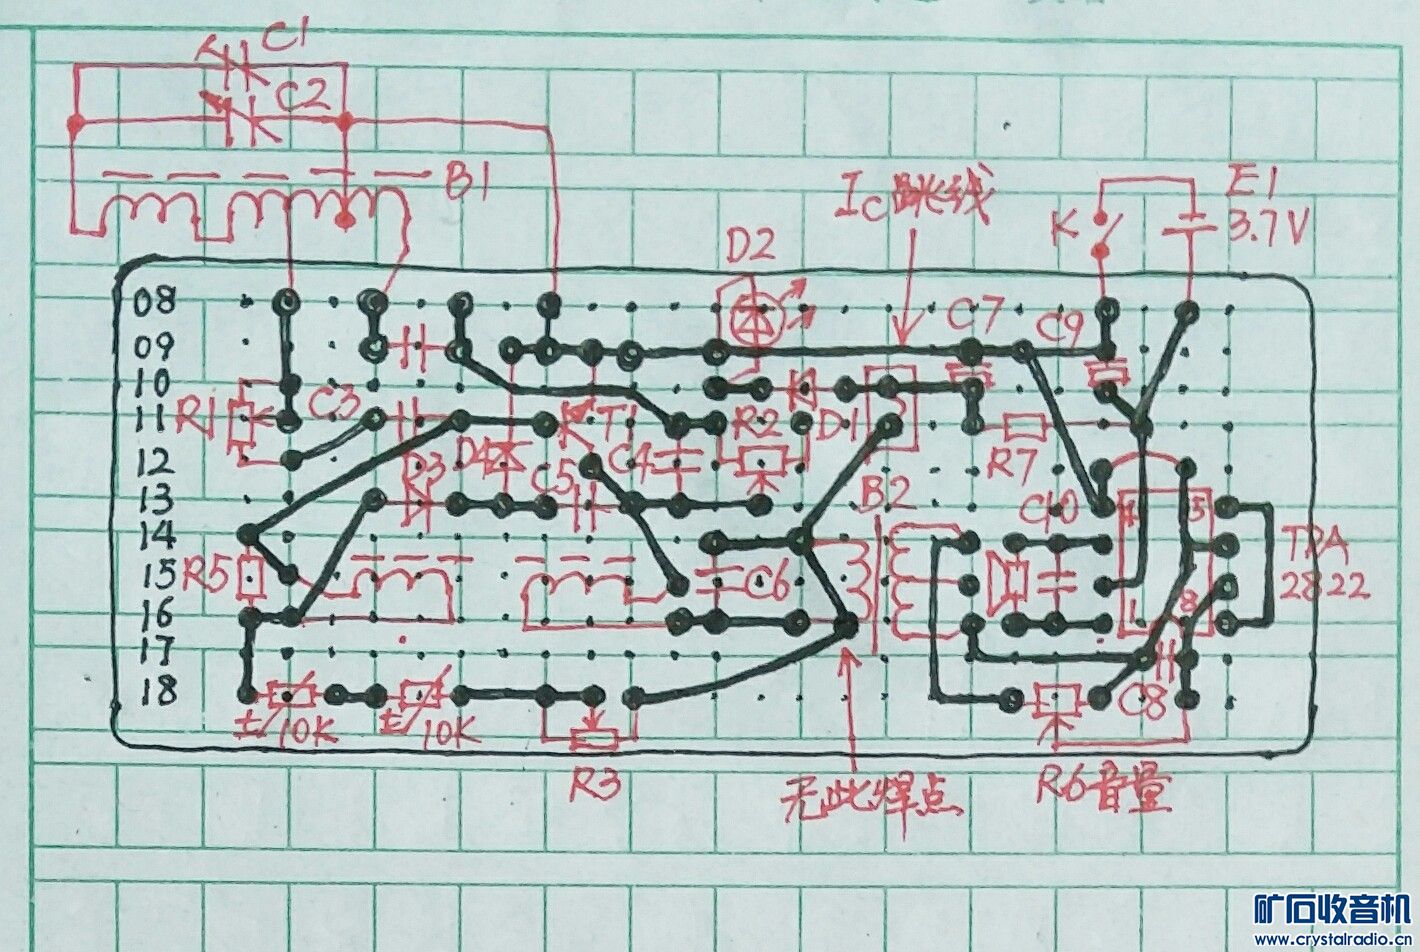 C1
C2
B1
Ic跳线
E1
3.7V
K
D2
08
09
C7
C9
10
11
R1
C3
T1
R2
D1
12
D3
D4
C5
C4
R7
13
B2
C10
4
5
14
TDA
2822
15
R5
C6
16
1
8
17
18
10K
10K
C8
R3
无此焊点
R6音量
矿石收音机
www.crystalradio.cn